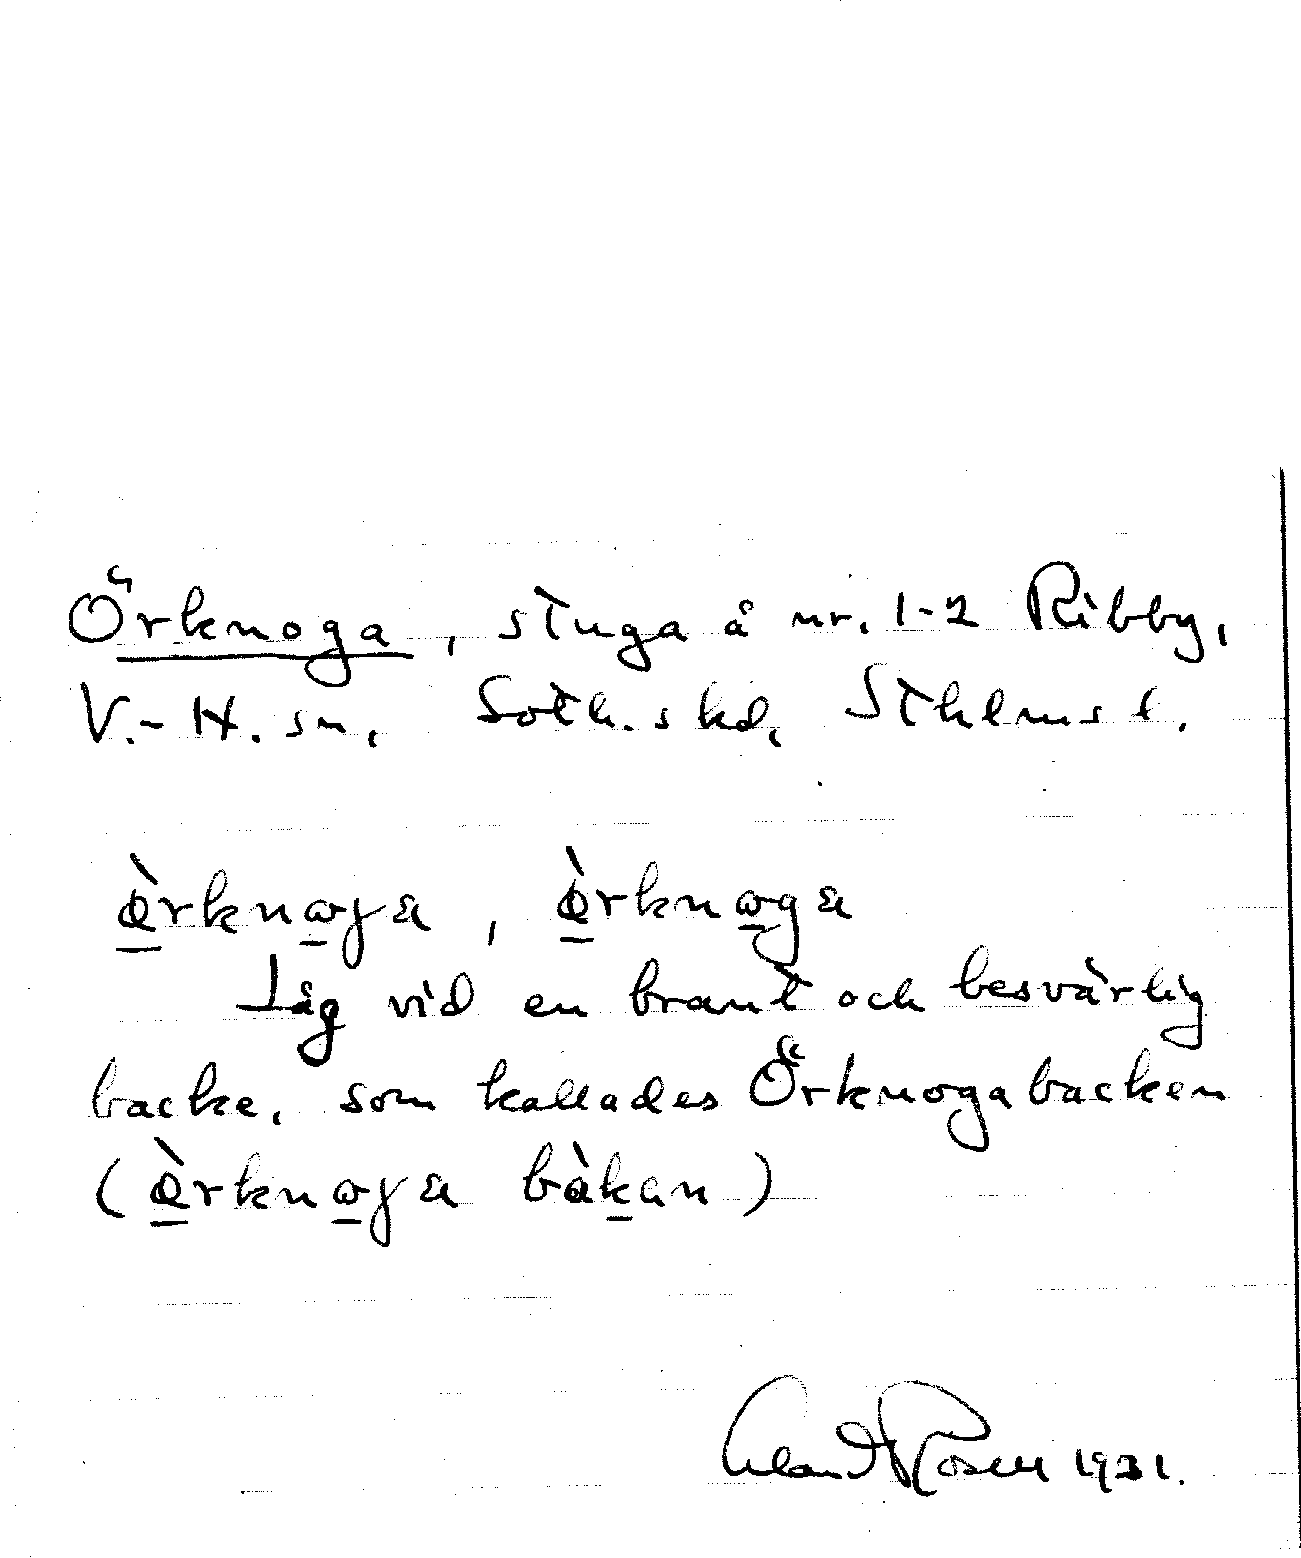 Örknoga, stuga å nr. 1-2 Ribby,
V.-H. sn, Soth. skd, Sthlms l.
ø̱̀rknɷ̱ɣa, ø̱̀rknɷ̱ga
Låg vid en brant och besvärlig
backe, som kallades Örknogabacken
(ø̱̀rknɷ̱ɣa bàḵan)
Rosell 1931.